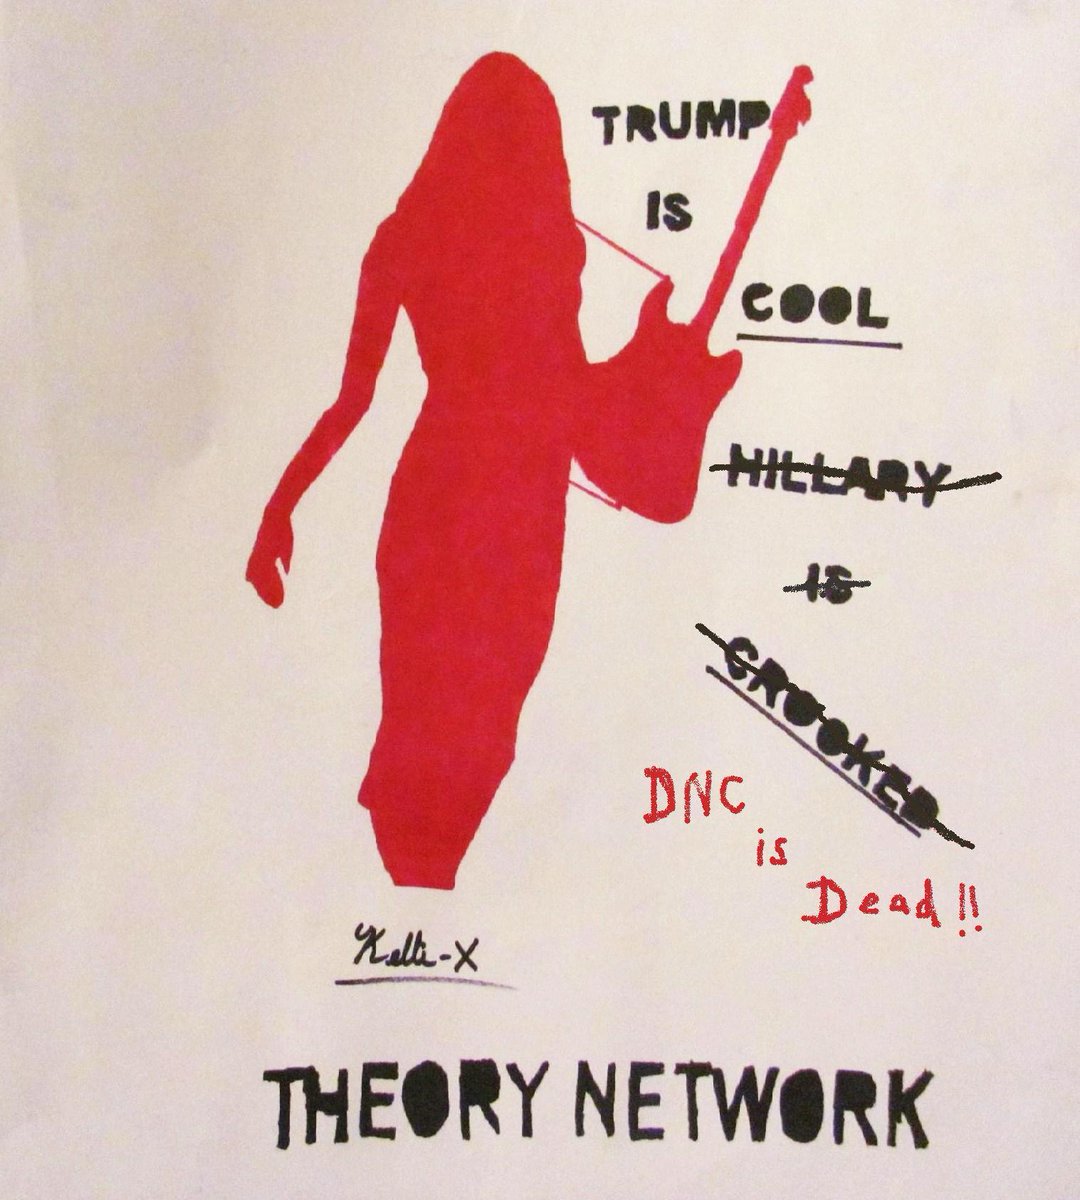 TRUMP
IS
COOL
HILLARY
IS
CROOKED
DNC
is
Dead !!
Kelli-X
THEORY NETWORK